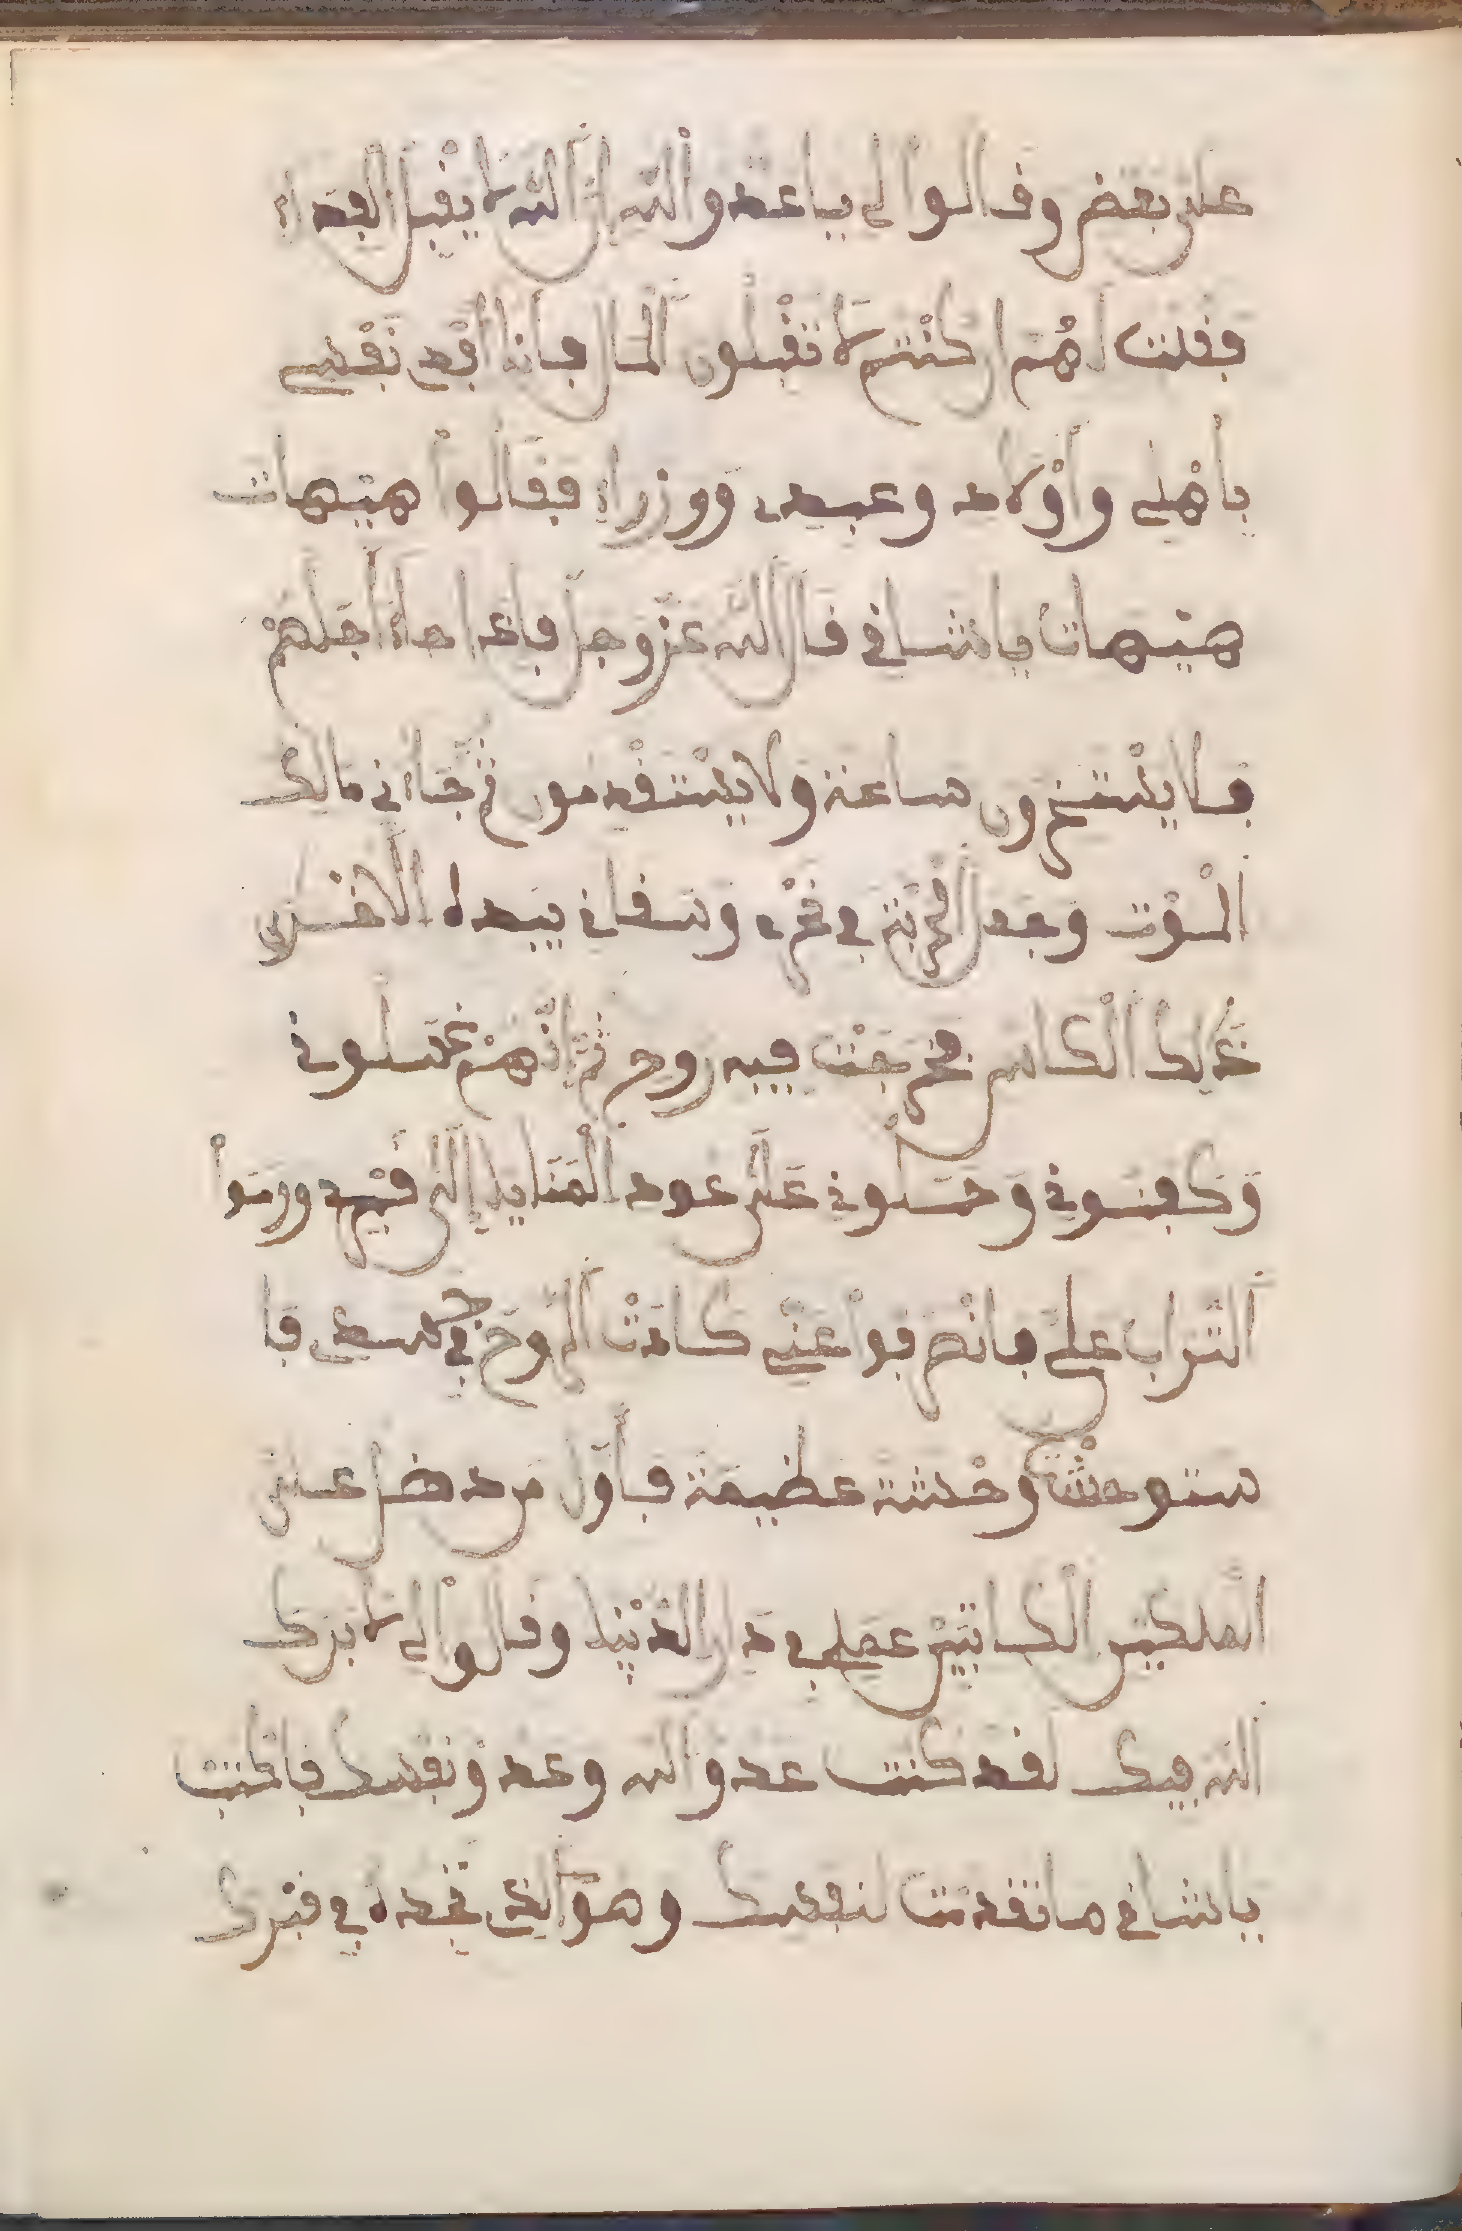 على بعض وقالوا لي يا عدو الله إن الله لا يقبل الفداء
فقلت لهم إن كنتم لا تقبلون المال فأنا أفدي نفسي
بأهلي وأولادي وعبيدي ووزراء فقالوا هيهات
هيهات يا شافي قال الله عز وجل فإذا جاء أجلهم
فلا يستخرون ساعة ولا يستقدمون ثم جاءني مالك
الموت وجعل الحربة في نحري وسقاني بيده الأخرى
ذلك الكأس فخرجت فيه روحي ثم إنهم غسلوني
وكفنوني وحملوني على عود المنايا إلى قبري ورموا
التراب علي فانصرفوا عني كادت الروح في جسدي فا
ستوحشت وحشة عظيمة فأول من دخل على
الملكين الكاتبين عملي في دار الدنيا وقالوا لي لا برك
الله فيك لقد كنت عدو الله وعدو نفسك فاكتب
يا شافي ما تقدمت لنفسك وهو الذي تجده في قبرك